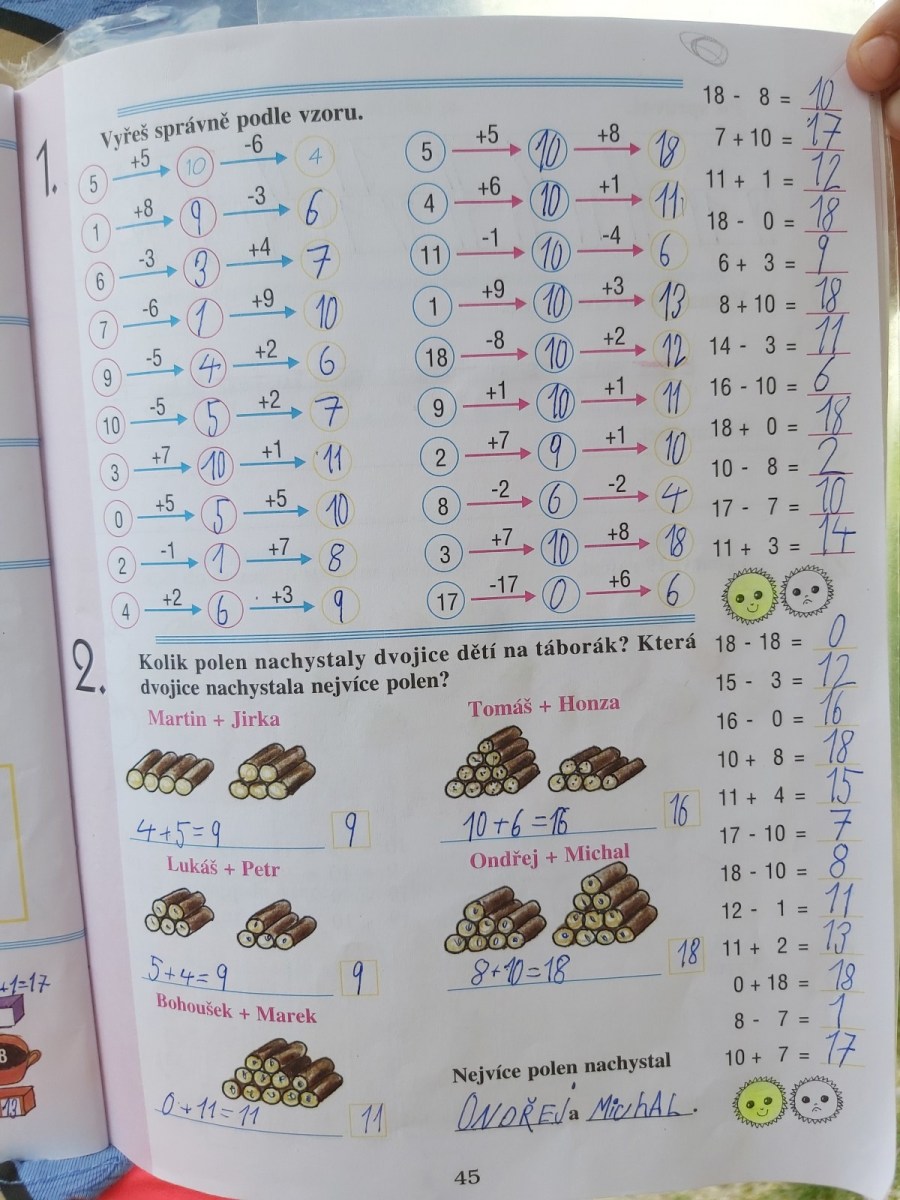 1.
Vyřeš správně podle vzoru.
5 +5 10 -6 4
1 +8 9 -3 6
6 -3 3 +4 7
7 -6 1 +9 10
9 -5 4 +2 6
10 -5 5 +2 7
3 +7 10 +1 11
0 +5 5 +5 10
2 -1 1 +7 8
4 +2 6 +3 9
5 +5 10 +8 18
4 +6 10 +1 11
11 -1 10 -4 6
1 +9 10 +3 13
18 -8 10 +2 12
9 +1 10 +1 11
2 +7 9 +1 10
8 -2 6 -2 4
3 +7 10 +8 18
17 -17 0 +6 6
18 - 8 = 10
7 + 10 = 17
11 + 1 = 12
18 - 0 = 18
6 + 3 = 9
8 + 10 = 18
14 - 3 = 11
16 - 10 = 6
18 + 0 = 18
10 - 8 = 2
17 - 7 = 10
11 + 3 = 14
2.
Kolik polen nachystaly dvojice dětí na táborák? Která
dvojice nachystala nejvíce polen?
Martin + Jirka
4+5=9 9
Tomáš + Honza
10+6=16 16
Lukáš + Petr
5+4=9 9
Ondřej + Michal
8+10=18 18
Bohoušek + Marek
0+11=11 11
Nejvíce polen nachystal
ONDŘEJ a MichAL .
18 - 18 = 0
15 - 3 = 12
16 - 0 = 16
10 + 8 = 18
11 + 4 = 15
17 - 10 = 7
18 - 10 = 8
12 - 1 = 11
11 + 2 = 13
0 + 18 = 18
8 - 7 = 1
10 + 7 = 17
45
+1=17
8
13